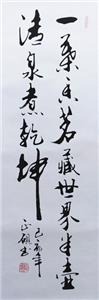 一叶香茗藏世界半壶
清泉煮乾坤
己亥年